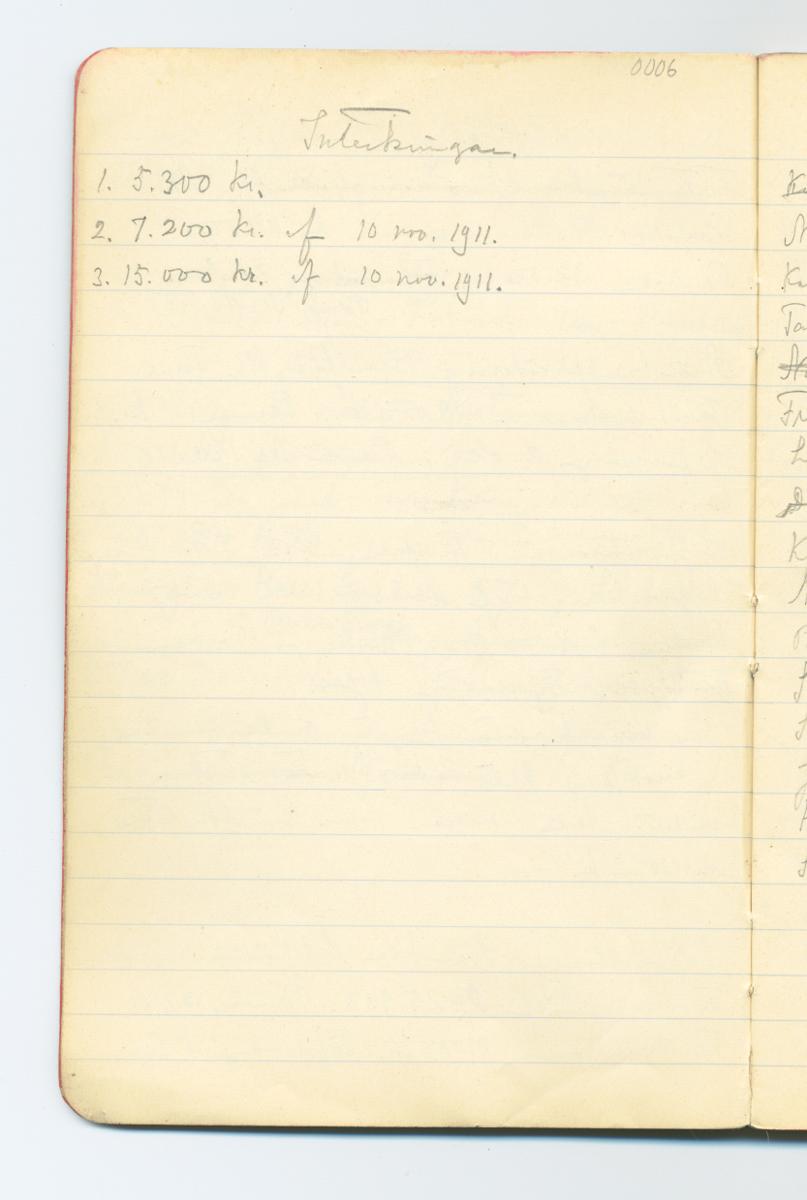 0006
Inteckningar.
1. 5.300 kr.
2. 7.200 kr. af 10 nov. 1911.
3. 15.000 kr. af 10 nov. 1911.